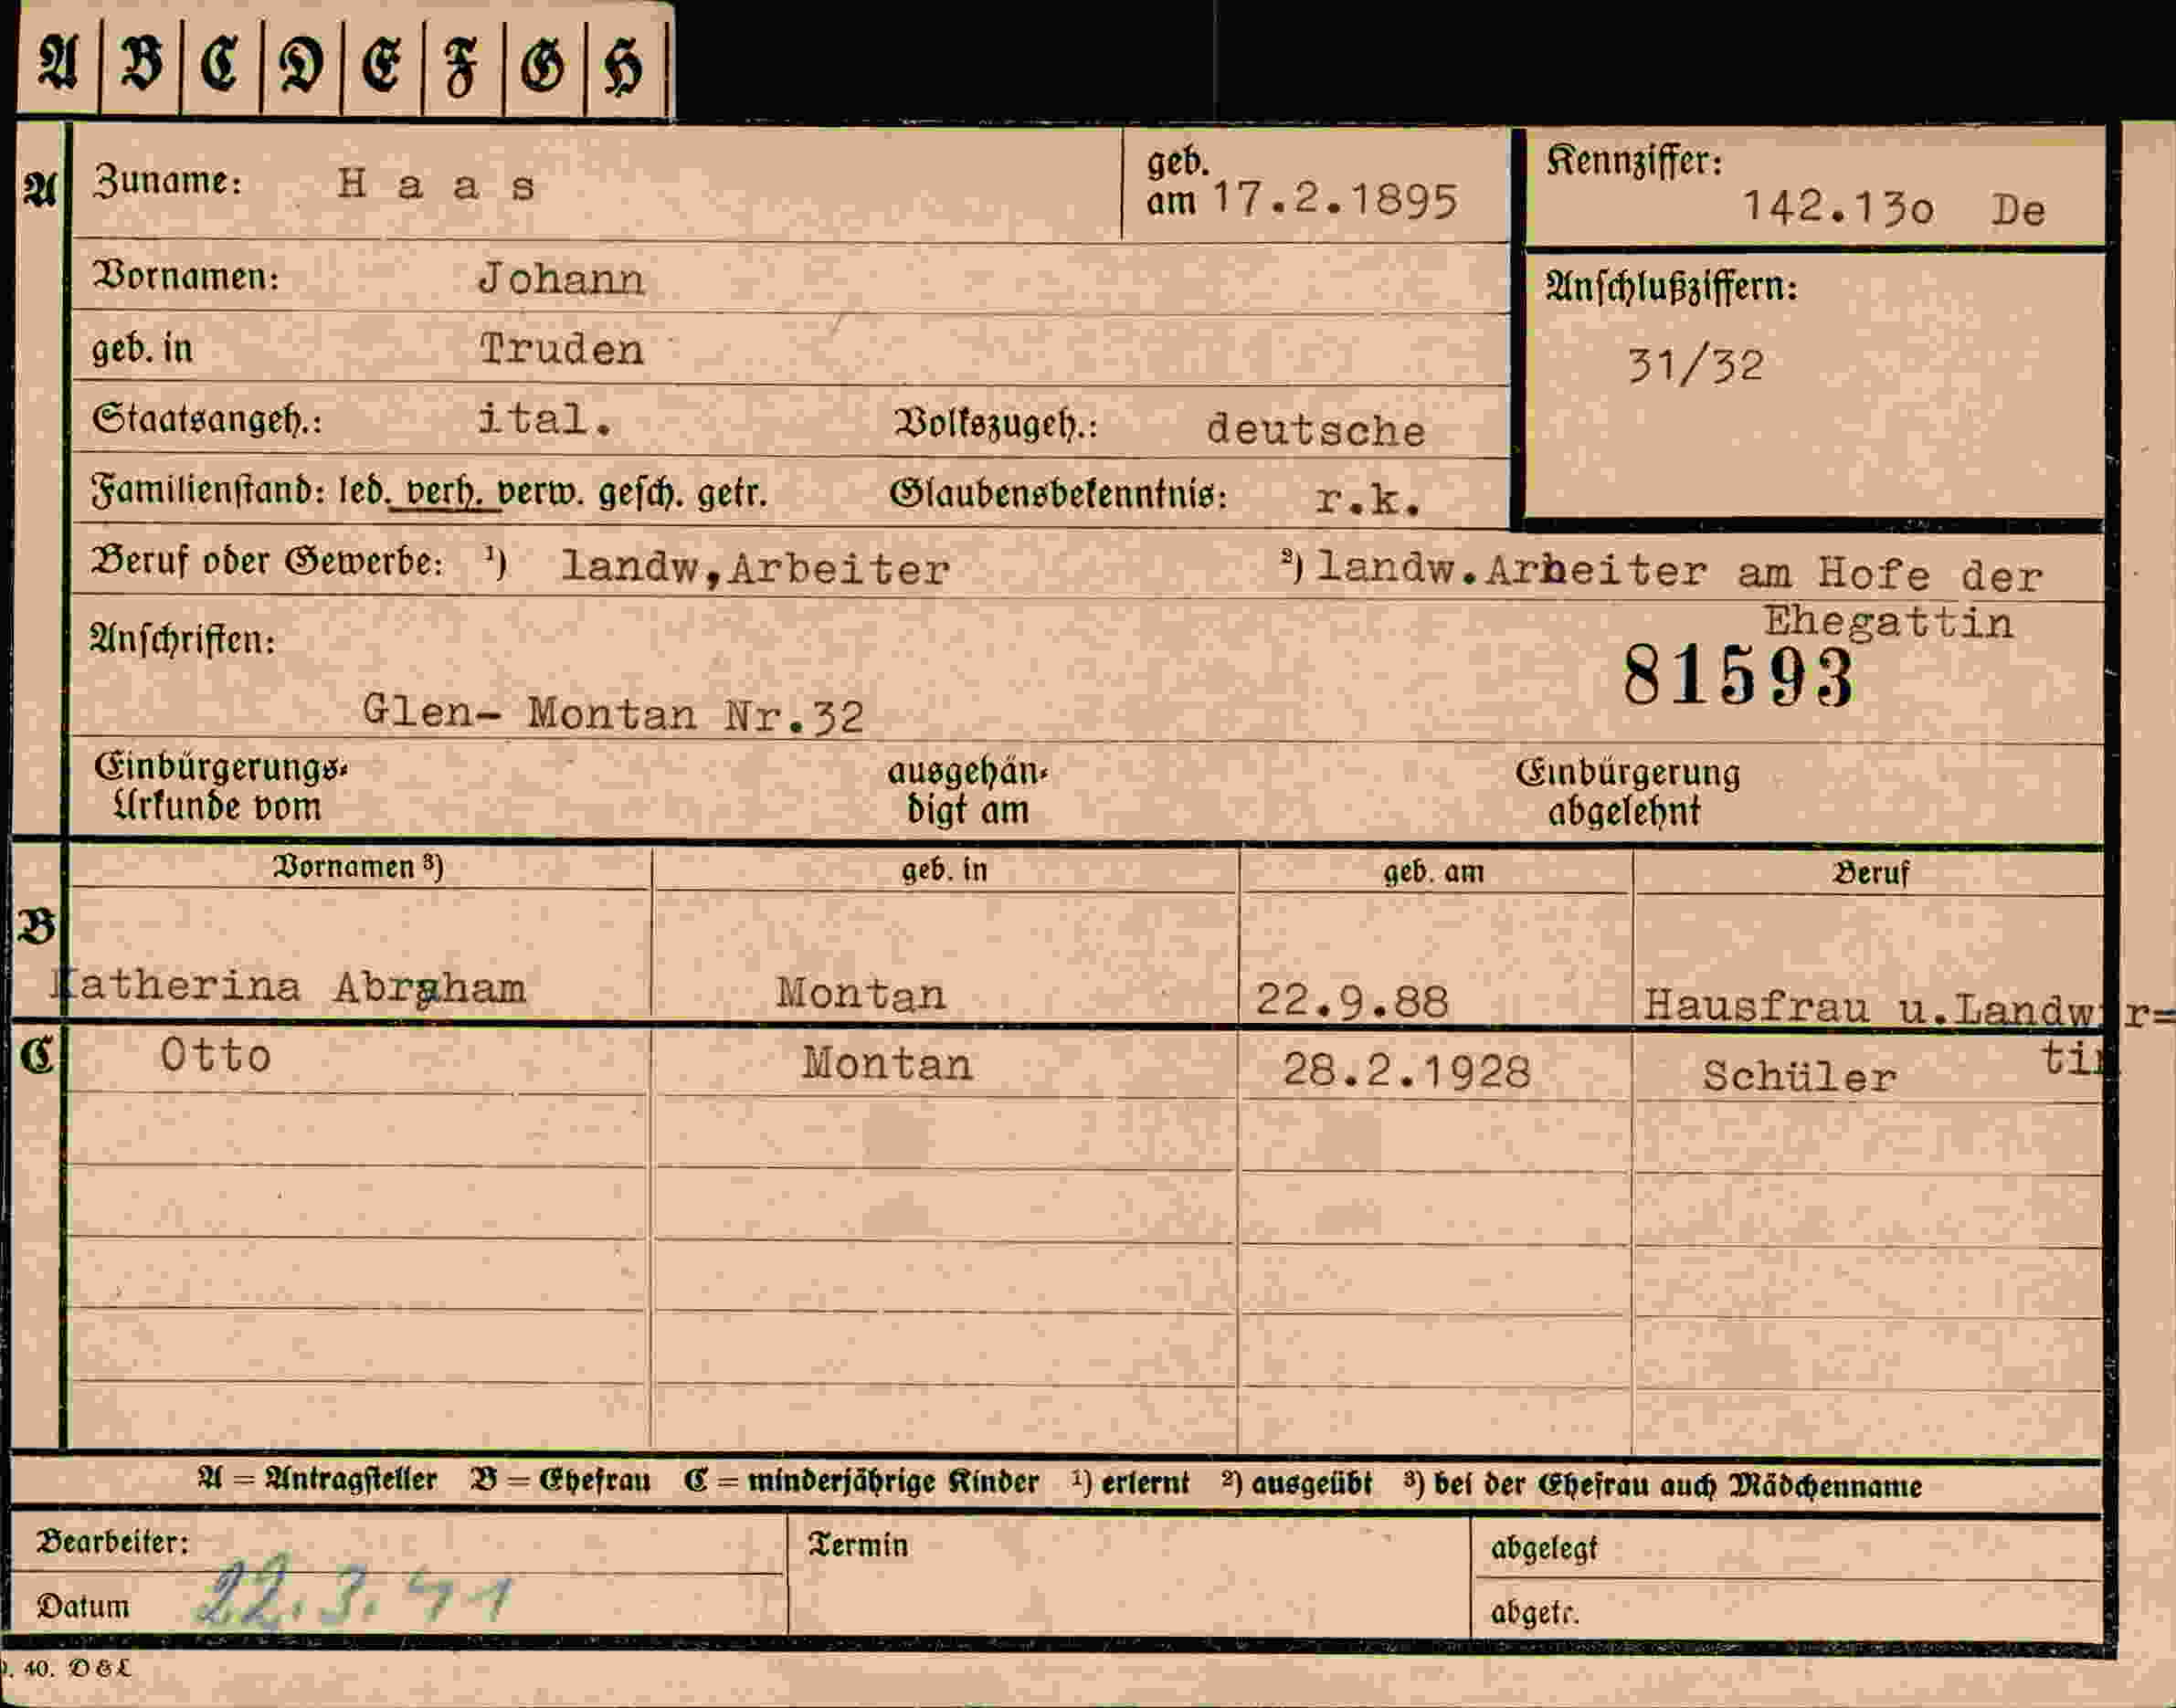 A B C D E F G H
A Zuname: H a a s geb. am 17.2.1895 Kennziffer: 142.13o De
Vornamen: Johann Anschlußziffern:
geb. in Truden 31/32
Staatsangeh.: ital. Volkszugeh.: deutsche
Familienstand: led. verh. verw. gesch. getr. Glaubensbekenntnis: r.k.
Beruf oder Gewerbe: ¹) landw,Arbeiter ²) landw.Arheiter am Hofe der
Ehegattin
Anschriften: 81593
Glen- Montan Nr.32
Einbürgerungs- ausgehän- Einbürgerung
Urkunde vom digt am abgelehnt
Vornamen ³) geb. in geb. am Beruf
B
Katherina Abraham Montan 22.9.88 Hausfrau u.Landwir=
tin
C Otto Montan 28.2.1928 Schüler
A = Antragsteller B = Ehefrau C = minderjährige Kinder ¹) erlernt ²) ausgeübt ³) bei der Ehefrau auch Mädchenname
Bearbeiter: Termin abgelegt
Datum 22.3.41 abgetr.
40. D & L